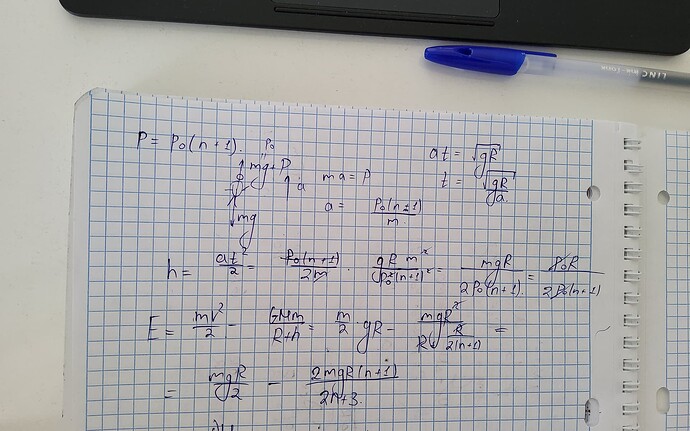 P = P₀(n+1).
P₀
mg+P
a
mg
ma = P
a = P₀(n+1)/m
at = √gR
t = √gR/a
h = at²/2 = P₀(n+1)/2m · gR m²/P₀²(n+1)² = mgR/2P₀(n+1) = P₀R/2P₀(n+1)
E = mV²/2 − GMm/R+h = m/2 · gR − mgR²/R+R/2(n+1) =
= mgR/2 − 2mgR(n+1)/2n+3
LINC